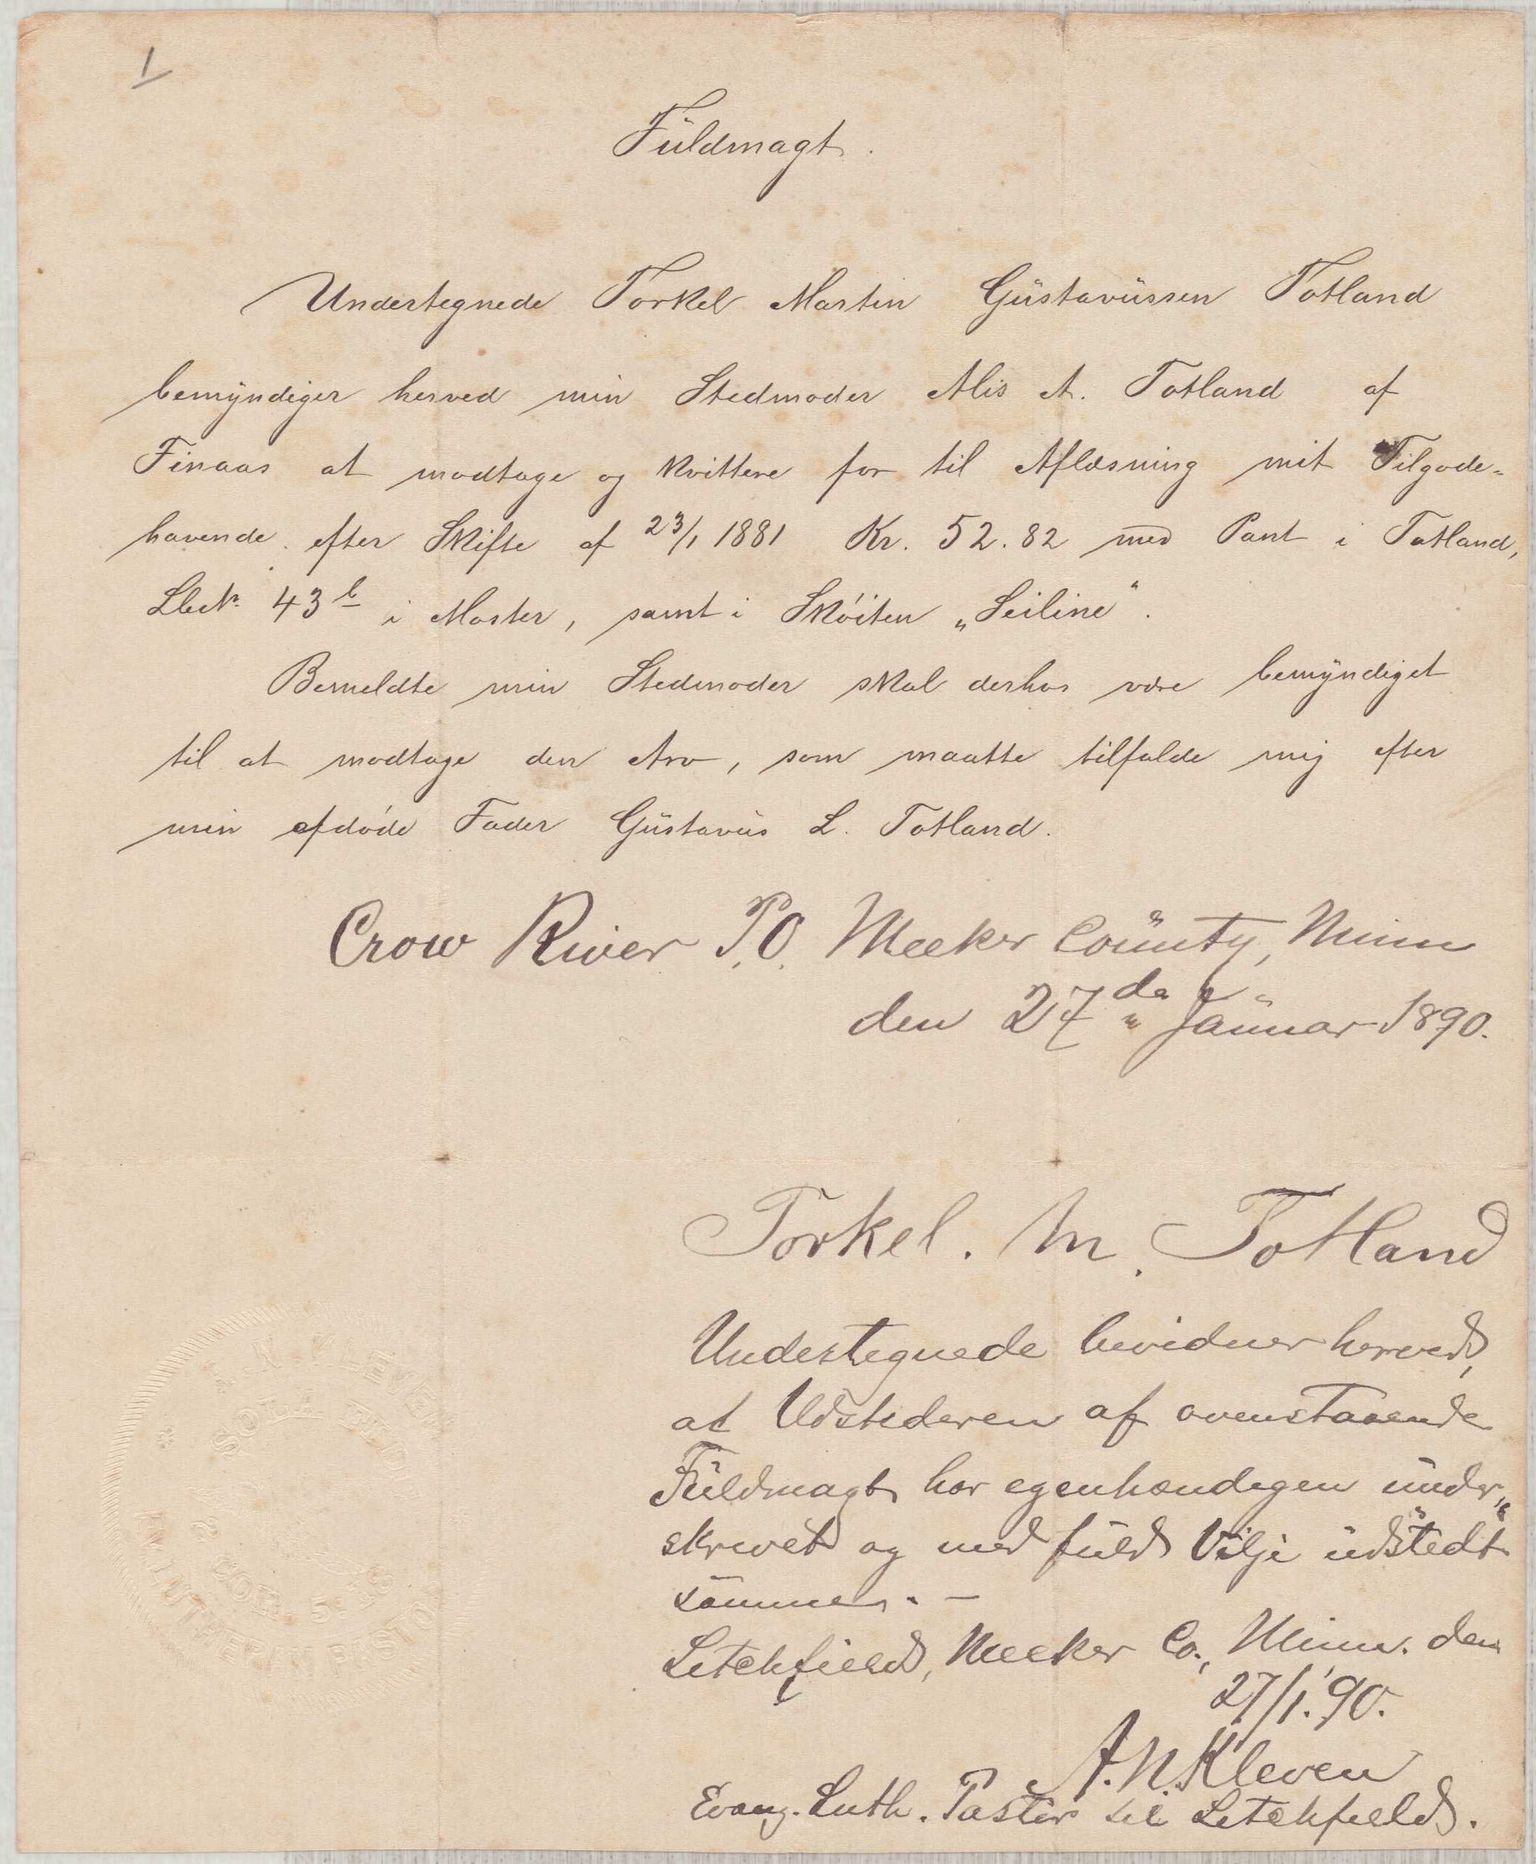 1
Fuldmagt.
Undertegnede Torkel Martin Gustavussen Totland
bemyndiger herved min Stedmoder Alis A. Totland af
Finaas at modtage og kvittere for til Aflæsning mit Tilgode-
havende efter Skifte af 23/1 1881 Kr. 52.82 med Pant i Totland,
43b i Moster, samt i Skøiten „Seiline“.
Bemeldte min Stedmoder skal derhos være bemyndiget
til at modtage den Arv, som maatte tilfalde mig efter
min afdøde Fader Gustavus L. Totland.
Crow River P.O. Meeker County, Minn
den 27de Januar 1890.
Torkel. M. Totland
Undertegnede bevidner herved,
at Udstederen af ovenstaaende
Fuldmagt har egenhændigen under-
skrevet og med fuld Vilje udstedt
samme. —
Litchfield, Meeker Co., Minn. den
27/1.'90.
A. N. Kleven
Evang. Luth. Pastor til Litchfield.